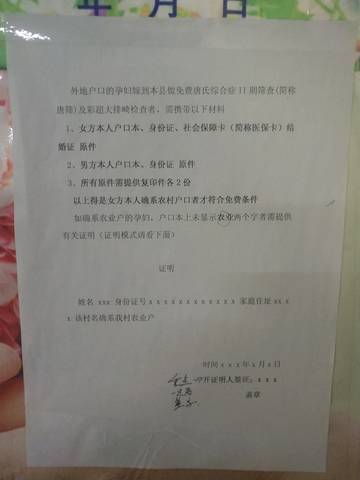 年 月 日
外地户口的孕妇嫁到本县做免费唐氏综合症II期筛查(简称
唐筛)及彩超大排畸检查者，需携带以下材料
1、女方本人户口本、身份证、社会保障卡（简称医保卡）结
婚证 原件
2、男方本人户口本、身份证 原件
3、所有原件需提供复印件各2份
以上得是女方本人确系农村户口者才符合免费条件
如确系农业户的孕妇，户口本上未显示农业两个字者需提供
有关证明（证明模式请看下面）
证明
姓名 xxx 身份证号 x x x x x x x x x x x x 家庭住址 xx x
x 该村名确系我村农业户
时间 x x x 年 x 月 x 日
开证明人签证：x x x
盖章